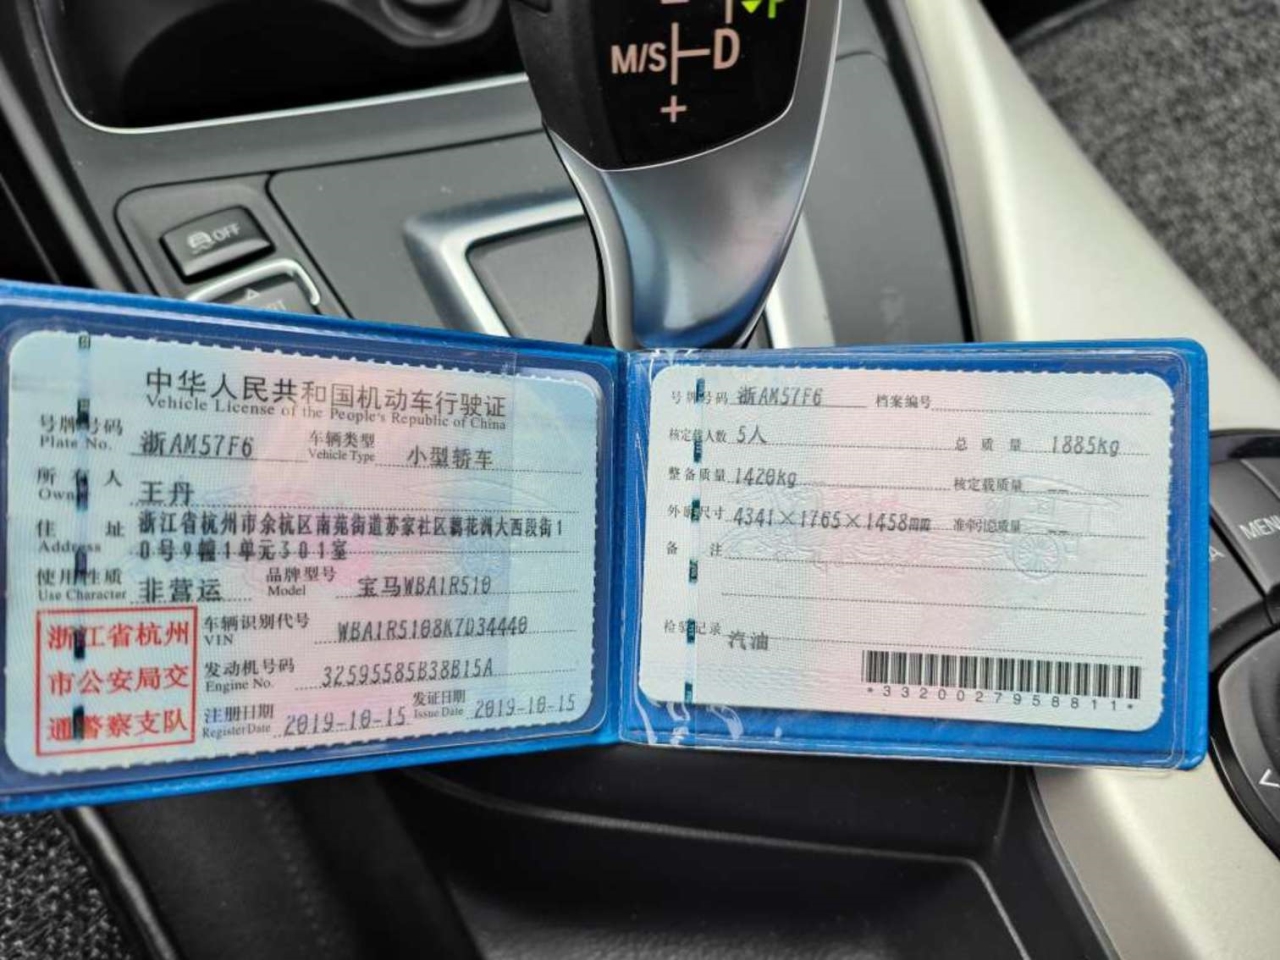 M/S
D
+
OFF
中华人民共和国机动车行驶证
Vehicle License of the People's Republic of China
号牌号码 浙AM57F6 车辆类型 小型轿车
Plate No. Vehicle Type
所有人 王丹
Owner
住址 浙江省杭州市余杭区南苑街道苏家社区藕花洲大西段街1
Address 0号9幢1单元301室
使用性质 非营运 品牌型号 宝马WBA1R510
Use Character Model
浙江省杭州
市公安局交
通警察支队
车辆识别代号 WBA1R5108K7D34440
VIN
发动机号码 32595585B38B15A
Engine No.
注册日期 2019-10-15 发证日期 2019-10-15
Register Date Issue Date
号牌号码 浙AM57F6 档案编号
核定载人数 5人 总质量 1885kg
整备质量 1420kg 核定载质量 --
外廓尺寸 4341×1765×1458mm 准牵引总质量 --
备注
检验记录 汽油
*3320027958811*
MENU